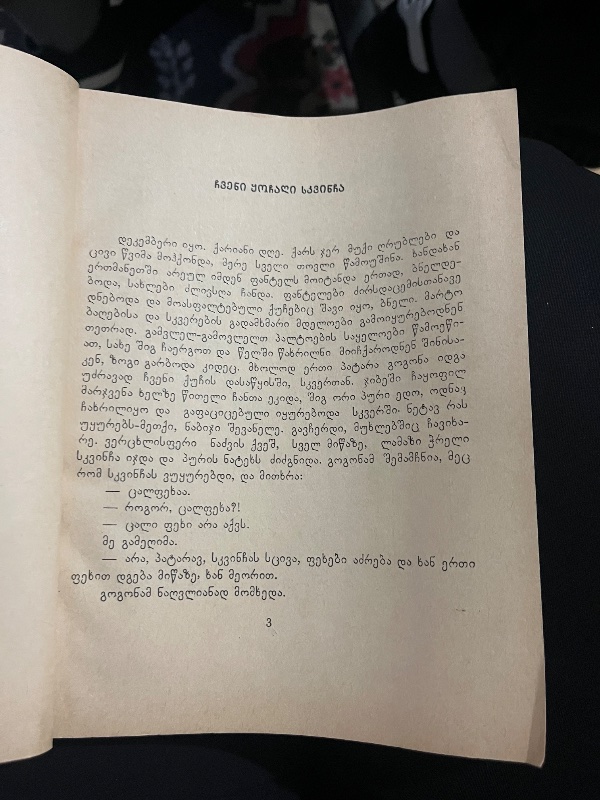 ჩვენი ყოჩაღი სკვინჩა
დეკემბერი იყო. ქარიანი დღე. ქარს ჯერ მუქი ღრუბლები და
ცივი წვიმა მოჰქონდა, მერე სველი თოვლი წამოუშინა. ხანდახან
ერთმანეთში არეულ იმდენ ფანტელს მოიტანდა ერთად, ბნელდე-
ბოდა, სახლები ძლივსღა ჩანდა. ფანტელები ძირსდაცემისთანავე
დნებოდა და მოასფალტებული ქუჩებიც შავი იყო, ბნელი. მარტო
ბაღებისა და სკვერების გადამხმარი მდელოები გამოიყურებოდნენ
თეთრად. გამვლელ-გამოვლელთ პალტოების საყელოები წამოეწი-
ათ, სახე შიგ ჩაერგოთ და წელში წახრილნი მიიჩქაროდნენ შინისა-
კენ, ზოგი გარბოდა კიდეც. მხოლოდ ერთი პატარა გოგონა იდგა
უძრავად ჩვენი ქუჩის დასაწყისში, სკვერთან. ჯიბეში ჩაყოფილ
მარჯვენა ხელზე წითელი ჩანთა ეკიდა, შიგ ორი პური ედო, ოდნავ
ჩახრილიყო და გაფაციცებული იყურებოდა სკვერში. ნეტავ რას
უყურებს-მეთქი, ნაბიჯი შევანელე. გავჩერდი, მუხლებშიც ჩავიხა-
რე. ვერცხლისფერი ნაძვის ქვეშ, სველ მიწაზე, ლამაზი ჭრელი
სკვინჩა იჯდა და პურის ნატეხს ძიძგნიდა. გოგონამ შემამჩნია, მეც
რომ სკვინჩას ვუყურებდი, და მითხრა:
— ცალფეხაა.
— როგორ, ცალფეხა?!
— ცალი ფეხი არა აქვს.
მე გამეღიმა.
— არა, პატარავ, სკვინჩას სცივა, ფეხები აძრება და ხან ერთი
ფეხით დგება მიწაზე, ხან მეორით.
გოგონამ ნაღვლიანად მომხედა.
3